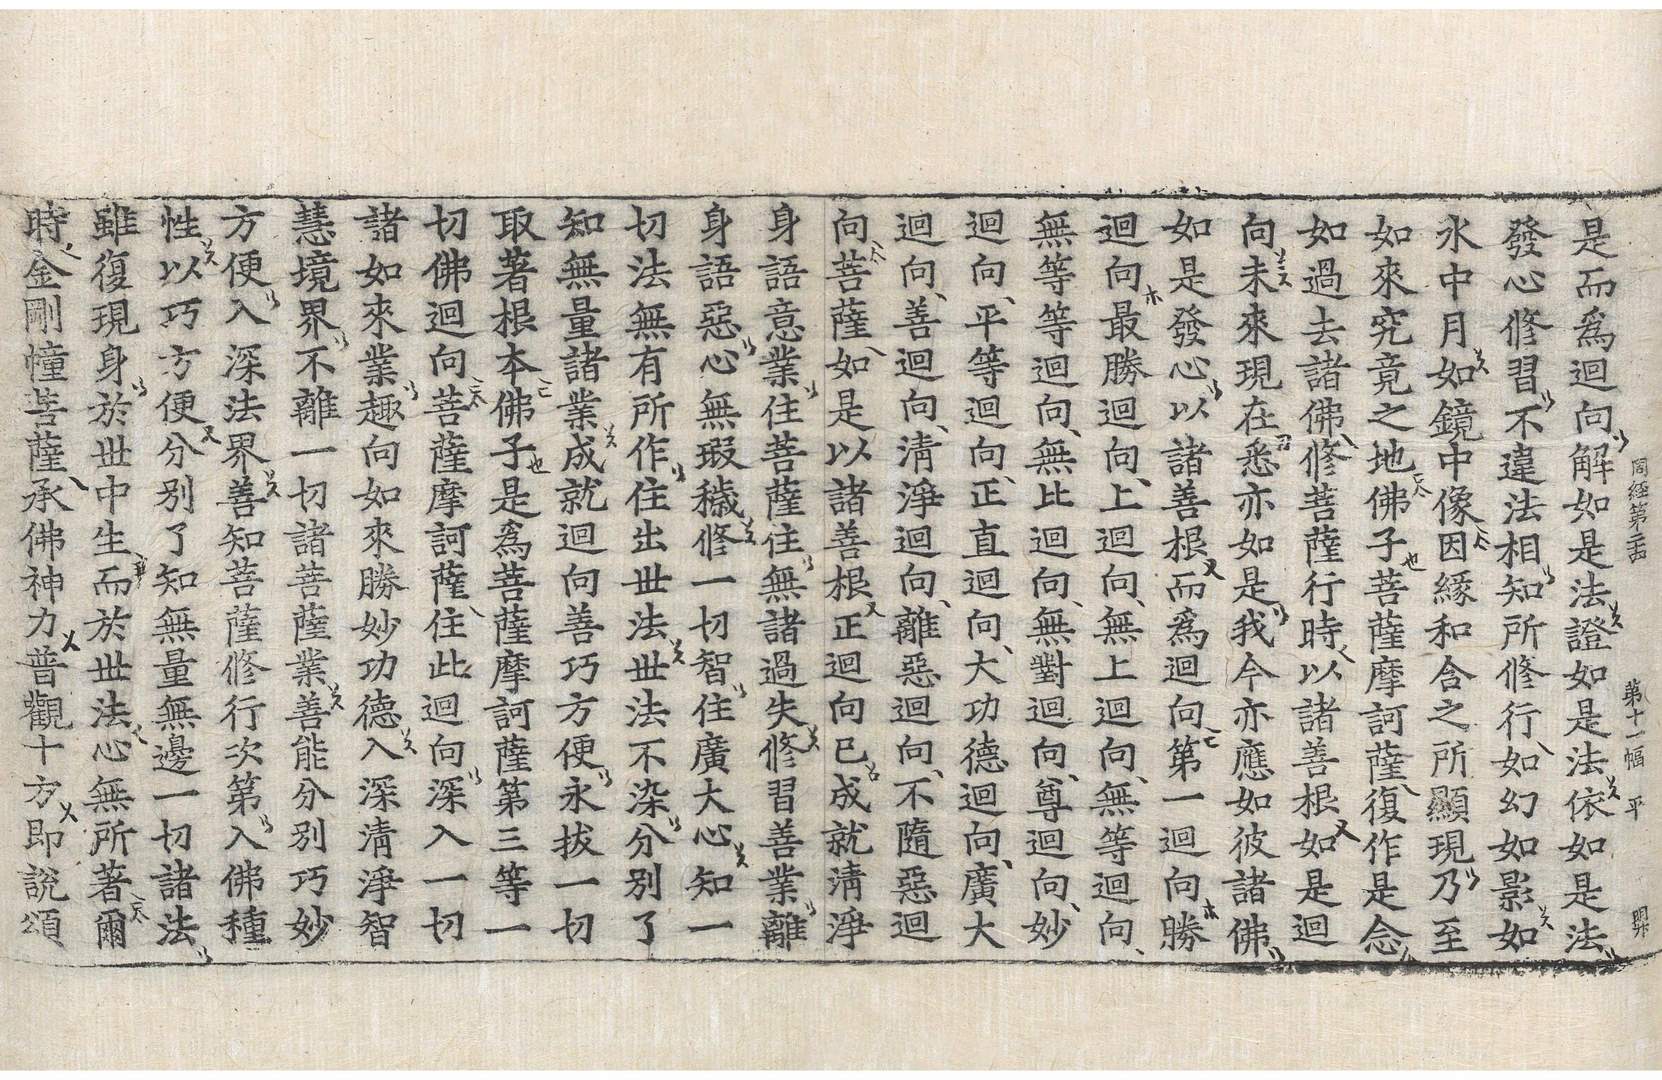 周經第二十四 第十一幅 平
是而爲迴向解如是法證如是法依如是法
發心修習不違法相知所修行如幻如影如
水中月如鏡中像因緣和合之所顯現乃至
如來究竟之地佛子菩薩摩訶薩復作是念
如過去諸佛修菩薩行時以諸善根如是迴
向未來現在悉亦如是我今亦應如彼諸佛
如是發心以諸善根而爲迴向第一迴向勝
迴向最勝迴向上迴向無上迴向無等迴向
無等等迴向無比迴向無對迴向尊迴向妙
迴向平等迴向正直迴向大功德迴向廣大
迴向善迴向清淨迴向離惡迴向不隨惡迴
向菩薩如是以諸善根正迴向已成就淸淨
身語意業住菩薩住無諸過失修習善業離
身語惡心無瑕穢修一切智住廣大心知一
切法無有所作住出世法世法不染分別了
知無量諸業成就迴向善巧方便永拔一切
取著根本佛子是爲菩薩摩訶薩第三等一
切佛迴向菩薩摩訶薩住此迴向深入一切
諸如來業趣向如來勝妙功德入深清淨智
慧境界不離一切諸菩薩業善能分別巧妙
方便入深法界善知菩薩修行次第入佛種
性以巧方便分別了知無量無邊一切諸法
雖復現身於世中生而於世法心無所著爾
時金剛幢菩薩承佛神力普觀十方即說頌